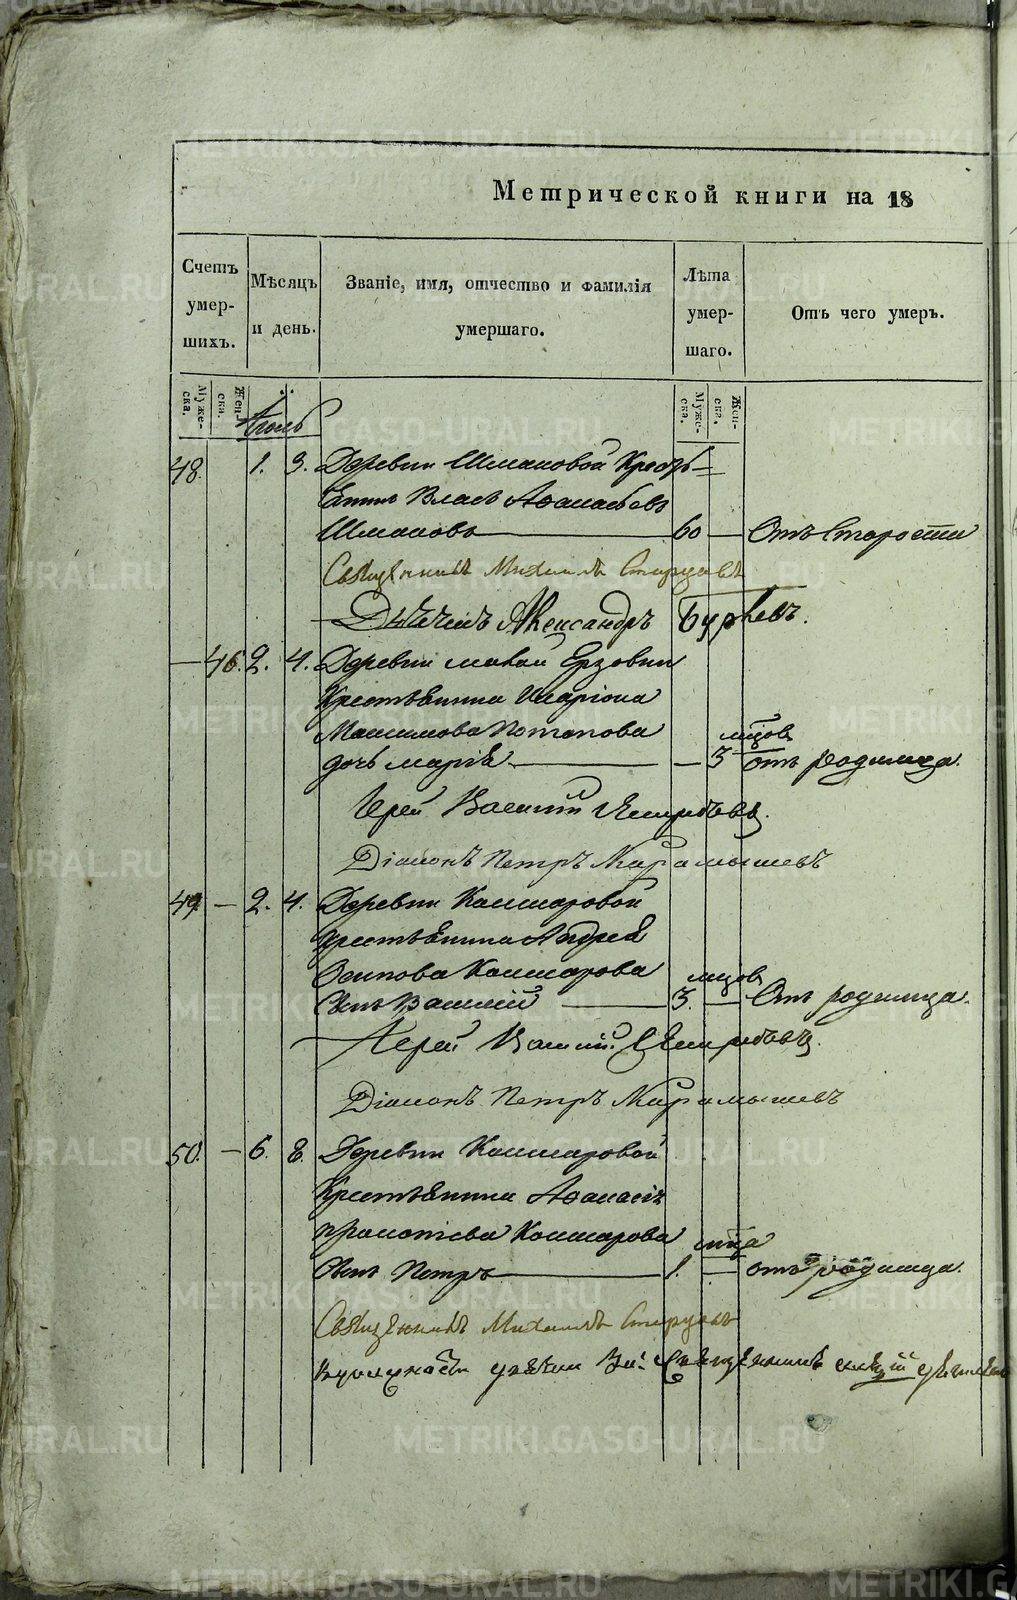 Метрической книги на 18
Счетъ умер-шихъ.
Мѣсяцъ и день.
Званіе, имя, отчество и фамилія умершаго.
Лѣта умер-шаго.
Отъ чего умеръ.
Муже-ска.
Жен-ска.
Муже-ска.
Жен-ска.
48. 1. 3. Деревни Шмаковой Кресть-
Власъ Аѳанасьевъ
Шмаковъ 60 Отъ Старости
Священникъ Михаилъ
Александръ
46. 2. 4. Деревни малой Ерзовки
Крестьянина Иларіона
Максимова Потапова мцовъ
дочь марія 3 отъ родимца.
Іерей Василій
Діаконъ Петръ Карамышевъ
49. 2. 4. Деревни Кашкаровой
крестьянина Андрея
Осипова Кашкарова мцовъ
Сынъ Василій 3. Отъ родимца.
Іерей Василій
Діаконъ Петръ Карамышевъ
50. 6. 8. Деревни Кашкаровой
Крестьянина Аѳанасія
Кашкарова мца
Сынъ Петръ 1. отъ родимца.
Священникъ Михаилъ
METRIKI.GASO-URAL.RU